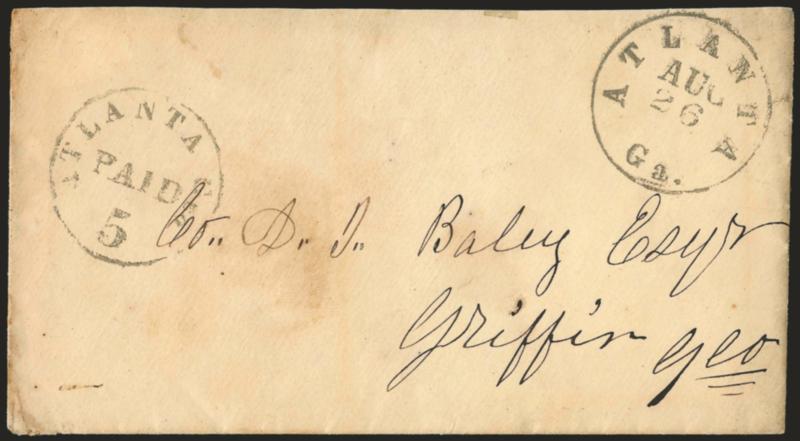 ATLANTA
AUG
26
Ga.
ATLANTA
PAID
5
Co.. D. J. Baley Esqr
Griffin Geo